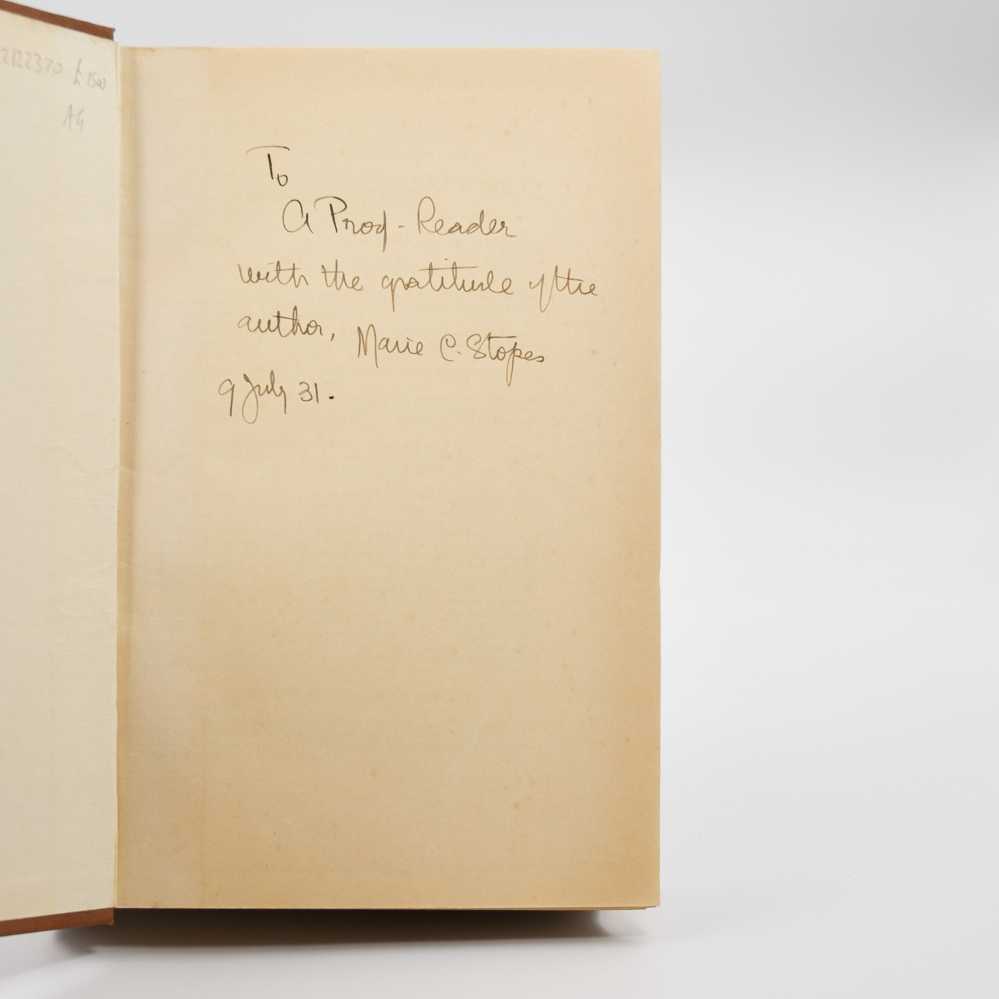 £1500
AG
To
A Proof-Reader
with the gratitude of the
author, Marie C. Stopes
9 July 31.